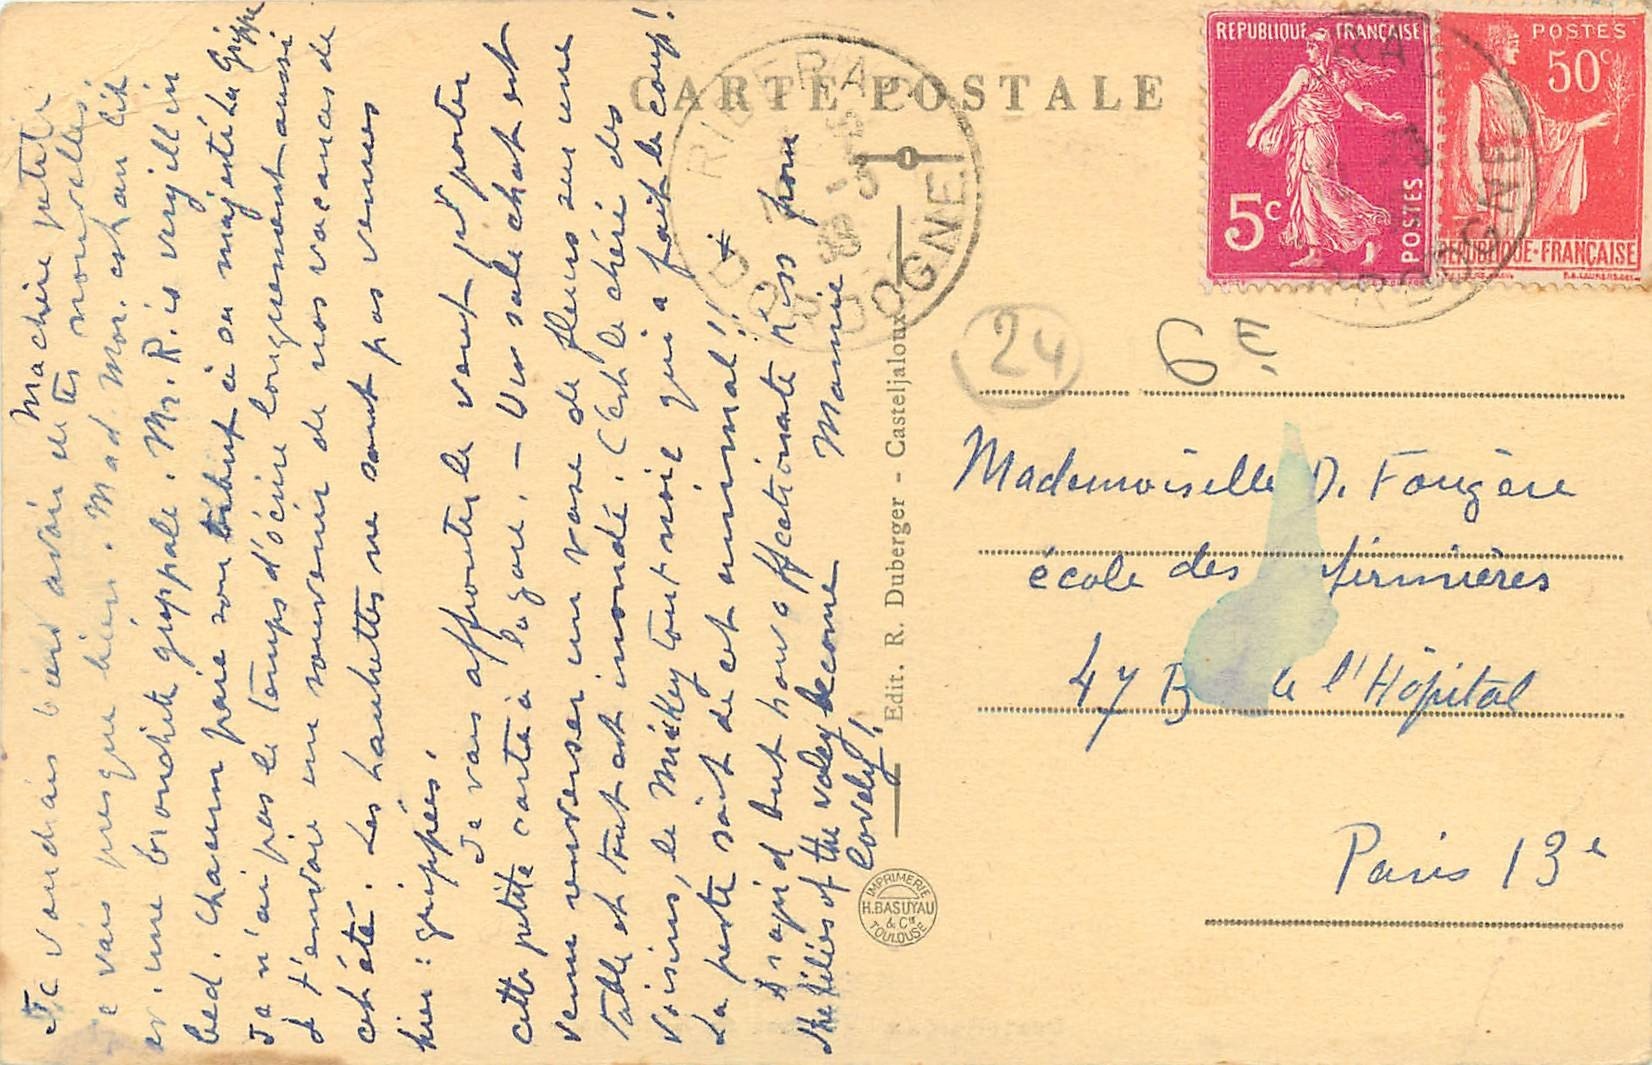 CARTE POSTALE
REPUBLIQUE FRANÇAISE
5c
POSTES
POSTES
50c
REPUBLIQUE-FRANÇAISE
RIBERAC
DORDOGNE
24
Ma chère petite
Je voudrais bien avoir de tes nouvelles,
je vais presque bien. Mad. Mor. est au lit
une bronchite grippale. Mr. R. is very ill in
bed. Chacun paie son tribut à sa majesté la Grippe
Je n'ai pas le temps d'écrire longuement aussi
je t'envoie un souvenir de nos vacances de
cet été. Les Lauhettes ne sont pas venues
hier : grippées.
Je vais affronter le vent pr porter
cette petite carte à la gare. — Un sale chat est
venu renverser un vase de fleurs sur une
table et tout est inondé. C'est le chéri des
voisins, le Mickey tout noir qui a fait le coup!
La peste soit de cet animal!!
I said but how affectionate kiss from
the lilies of the valey become Mamie
lovely!
Edit. R. Duberger - Casteljaloux
IMPRIMERIE
H. BASUYAU
& Cie
TOULOUSE
Mademoiselle D. Fougère
école des infirmières
47 B de l'Hôpital
Paris 13e